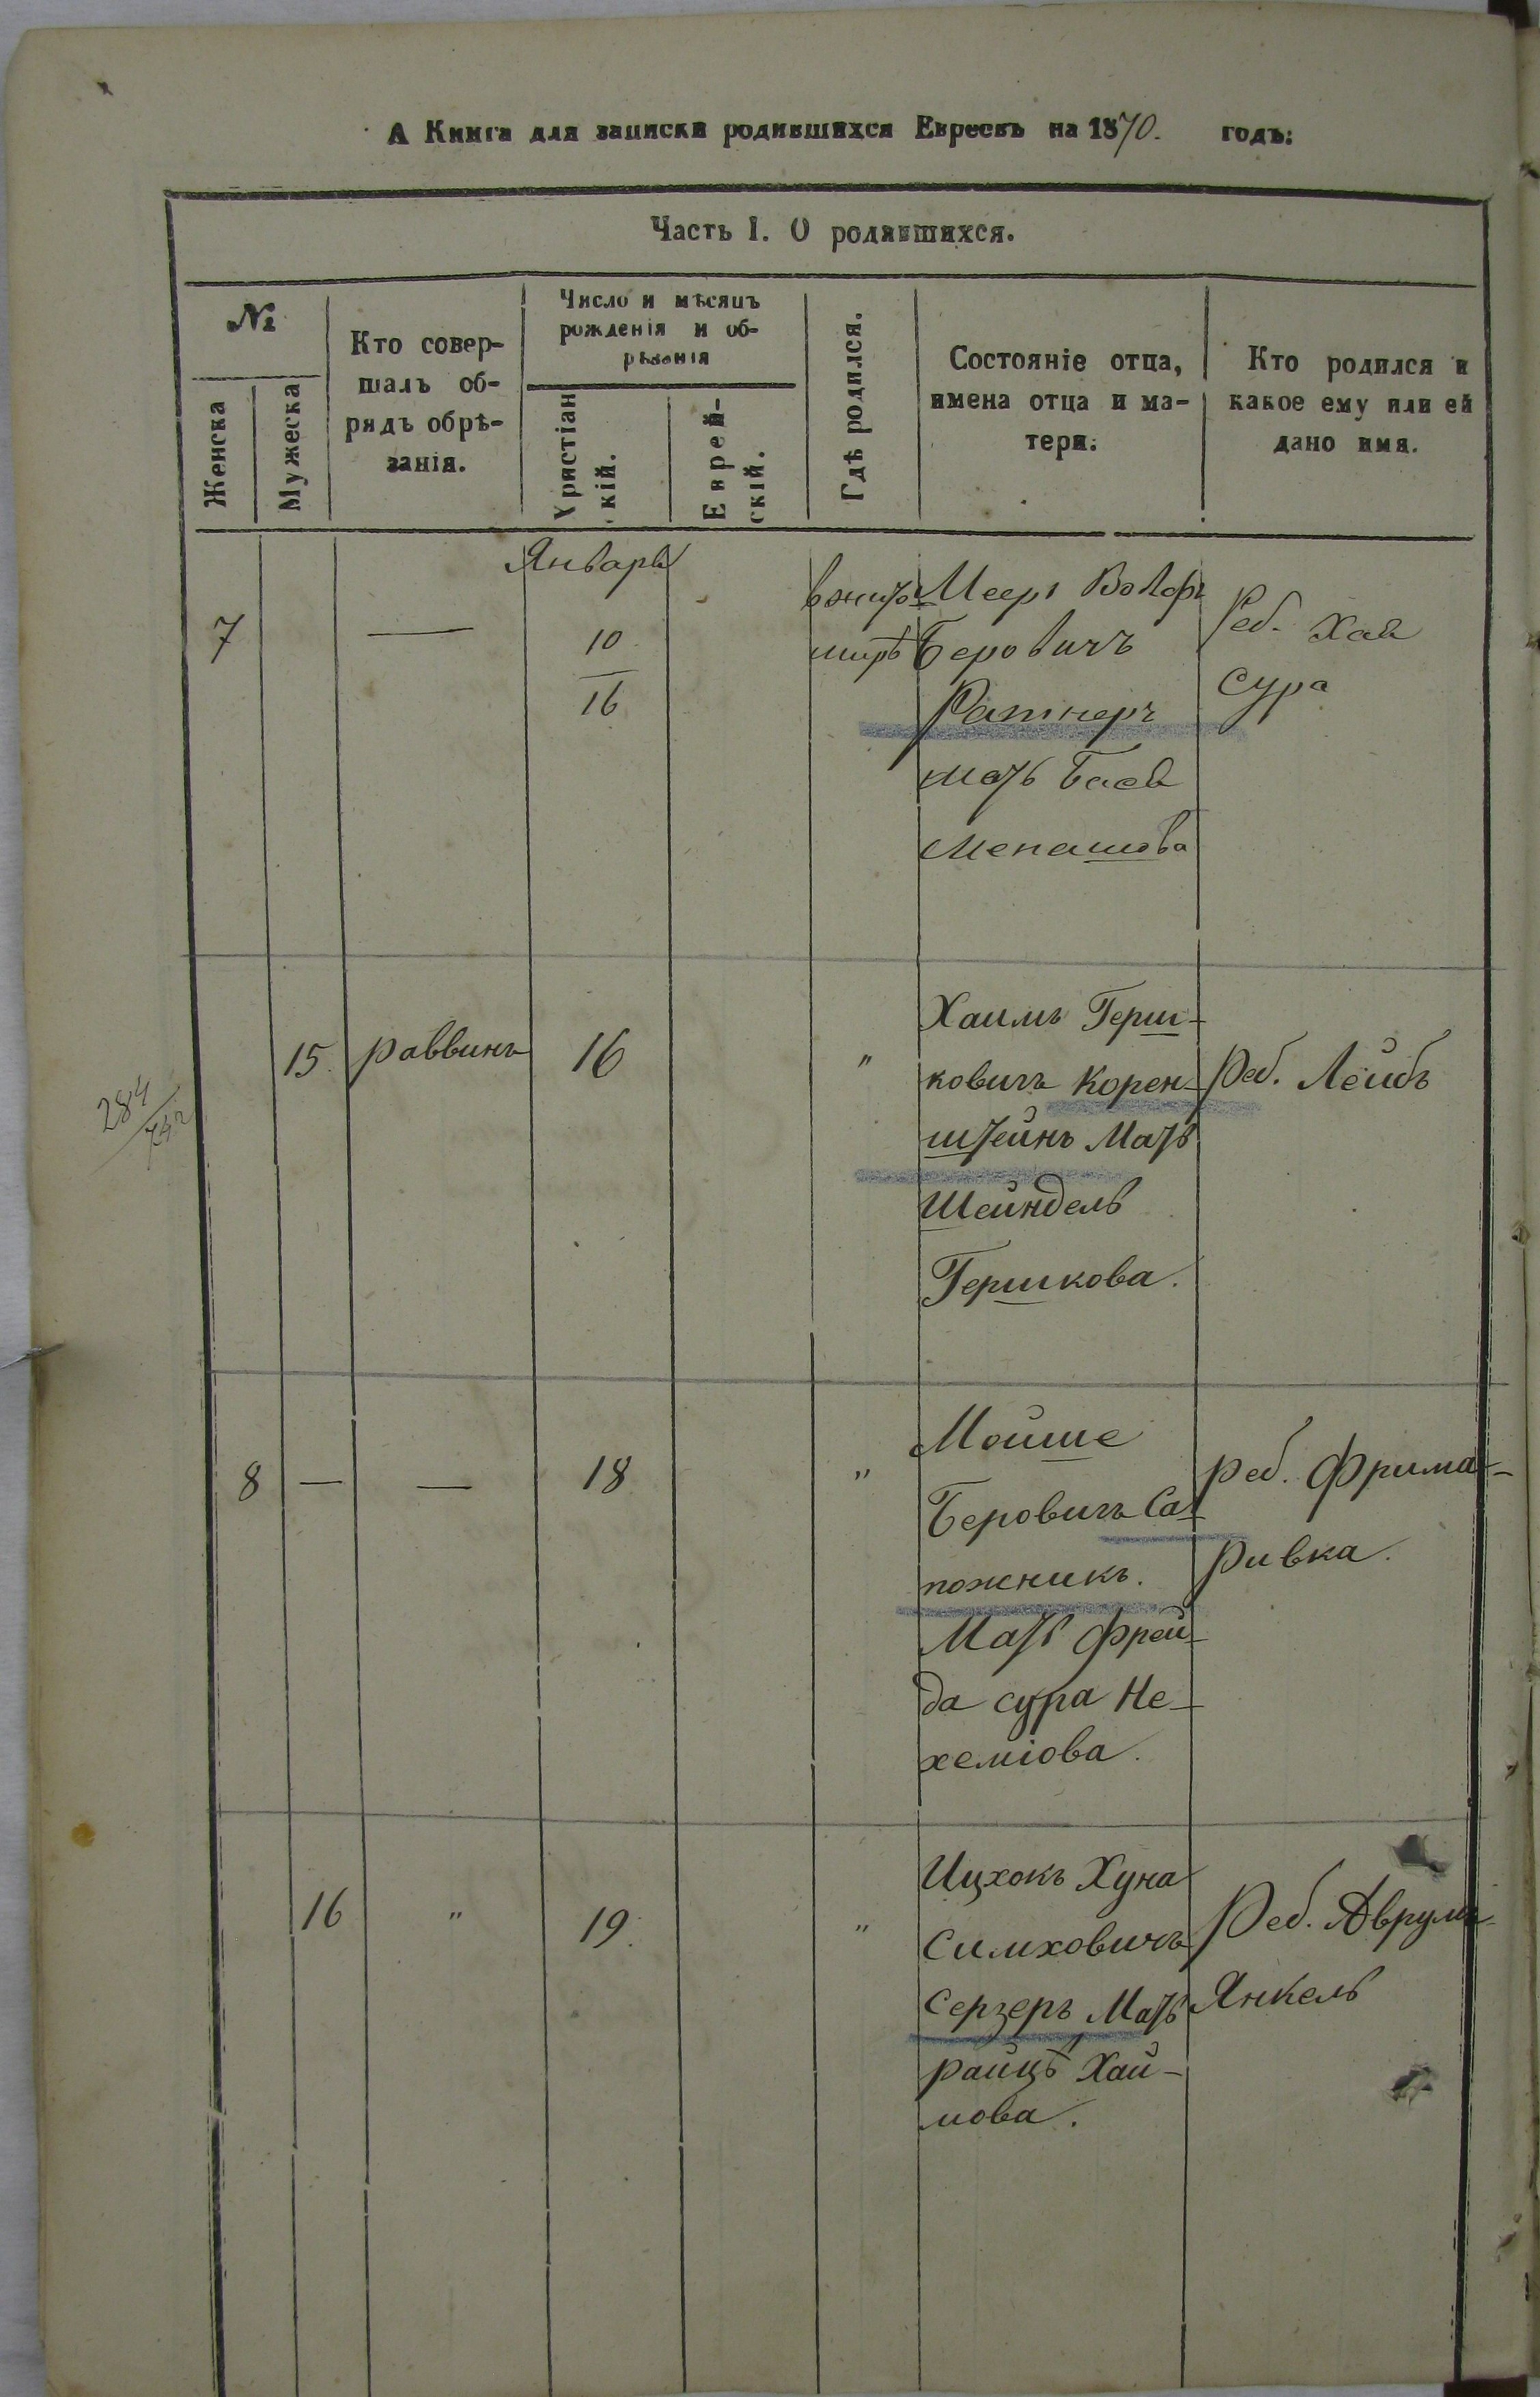 А Книга для записки родившихся Евреевъ на 1870. годъ:
Часть I. О родившихся.
№
Женска
Мужеска
Кто совер-
шалъ об-
рядъ обрѣ-
занія.
Число и мѣсяцъ
рожденія и об-
рѣзанія
Христіан
скій.
Еврей-
скій.
Гдѣ родился.
Состояніе отца,
имена отца и ма-
тери.
Кто родился и
какое ему или ей
дано имя.
Январь
7
—
10
16
в жито-
мирѣ
Мееръ Волфъ
Беровичъ
Ратнеръ
мать Бася
Менашова
Реб. Хая
Сура
284
15.
раввинъ
16
"
Хаимъ Герш-
ковичъ Корен-
штейнъ Мать
Шейндель
Гершкова.
Реб. Лейбъ
8
—
—
18
"
Мойше
Беровичъ Са-
пожникъ.
Мать Фрей-
да сура Не-
хеміова.
реб. Фрима-
Ривка.
16
"
19.
"
Ицхокъ Хуна
Симховичъ
Серзеръ, Мать
райцѣ Хаи-
мова.
Реб. Аврумъ-
Янкель